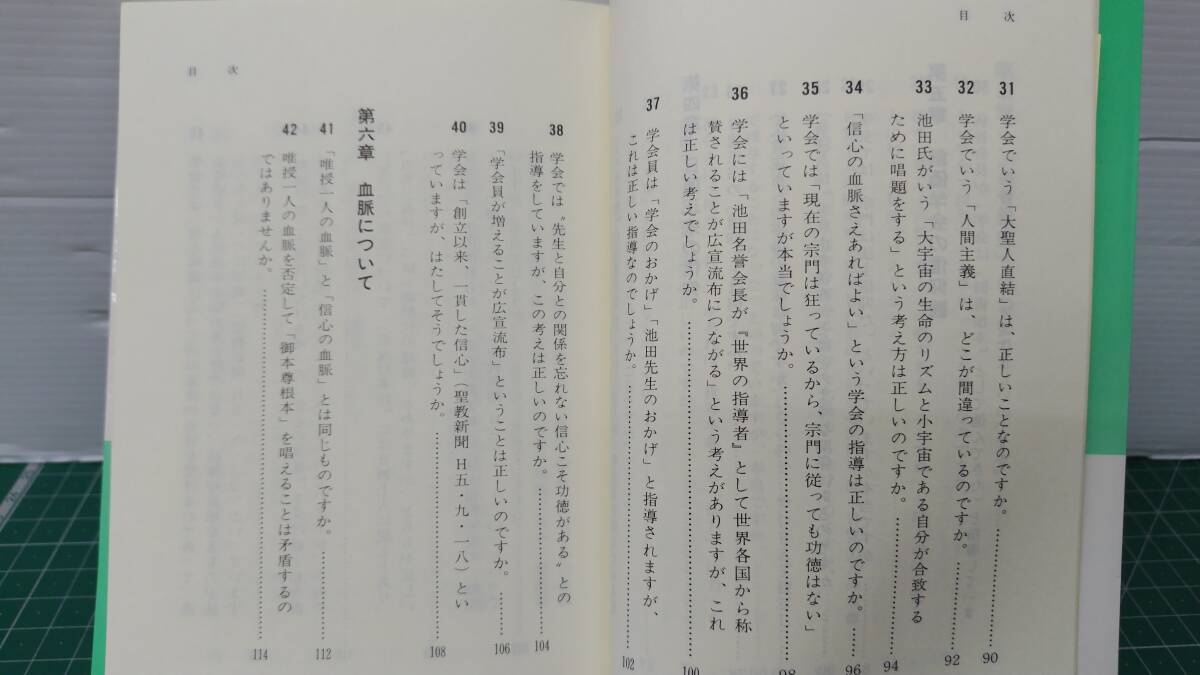 目　次
31　学会でいう「大聖人直結」は、正しいことなのですか。……90
32　学会でいう「人間主義」は、どこが間違っているのですか。……92
33　池田氏がいう「大宇宙の生命のリズムと小宇宙である自分が合致する
ために唱題をする」という考え方は正しいのですか。……94
34　「信心の血脈さえあればよい」という学会の指導は正しいのですか。……96
35　学会では「現在の宗門は狂っているから、宗門に従っても功徳はない」
といっていますが本当でしょうか。……98
36　学会には「池田名誉会長が『世界の指導者』として世界各国から称
賛されることが広宣流布につながる」という考えがありますが、これ
は正しい考えでしょうか。……100
37　学会員は「学会のおかげ」「池田先生のおかげ」と指導されますが、
これは正しい指導なのでしょうか。……102
目　次
38　学会では〝先生と自分との関係を忘れない信心こそ功徳がある〟との
指導をしていますが、この考えは正しいのですか。……104
39　「学会員が増えることが広宣流布」ということは正しいのですか。……106
40　学会は「創立以来、一貫した信心」（聖教新聞 H五・九・一八）とい
っていますが、はたしてそうでしょうか。……108
第六章　血脈について
41　「唯授一人の血脈」と「信心の血脈」とは同じものですか。……112
42　唯授一人の血脈を否定して「御本尊根本」を唱えることは矛盾するの
ではありませんか。……114